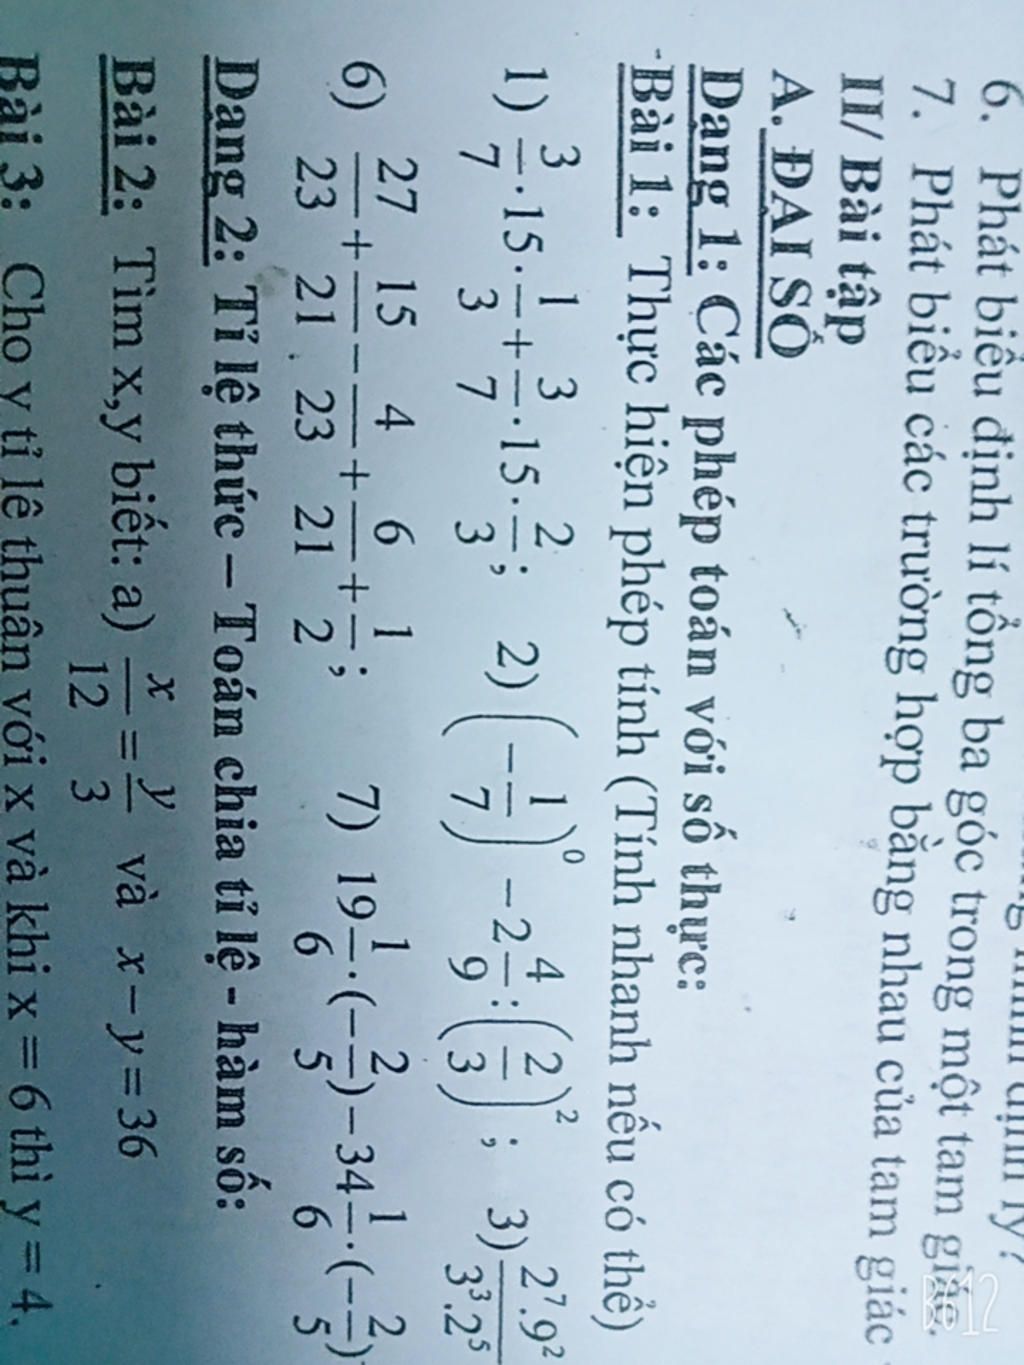 6. Phát biểu định lí tổng ba góc trong một tam giác.
7. Phát biểu các trường hợp bằng nhau của tam giác
II/ Bài tập
A. ĐẠI SỐ
Dạng 1: Các phép toán với số thực:
Bài 1: Thực hiện phép tính (Tính nhanh nếu có thể)
1) 3/7 . 15 . 1/3 + 3/7 . 15 . 2/3 ; 2) (-1/7)^0 - 2 4/9 : (2/3)^2 ; 3) 2^7.9^2 / 3^3.2^5
6) 27/23 + 15/21 - 4/23 + 6/21 + 1/2 ; 7) 19 1/6 . (-2/5) - 34 1/6 . (-2/5)
Dạng 2: Tỉ lệ thức – Toán chia tỉ lệ - hàm số:
Bài 2: Tìm x,y biết: a) x/12 = y/3 và x - y = 36
Bài 3: Cho y tỉ lệ thuận với x và khi x = 6 thì y = 4.
B612